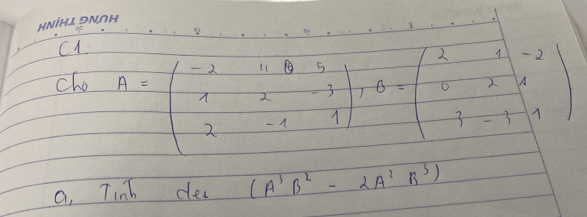 HƯNG THỊNH
C1.
Cho A = ( -2 4 5 ; 1 2 -3 ; 2 -1 1 ), B = ( 2 1 -2 ; 0 2 1 ; 3 -3 1 )
a, Tính det (A³B² - 2A²B³)